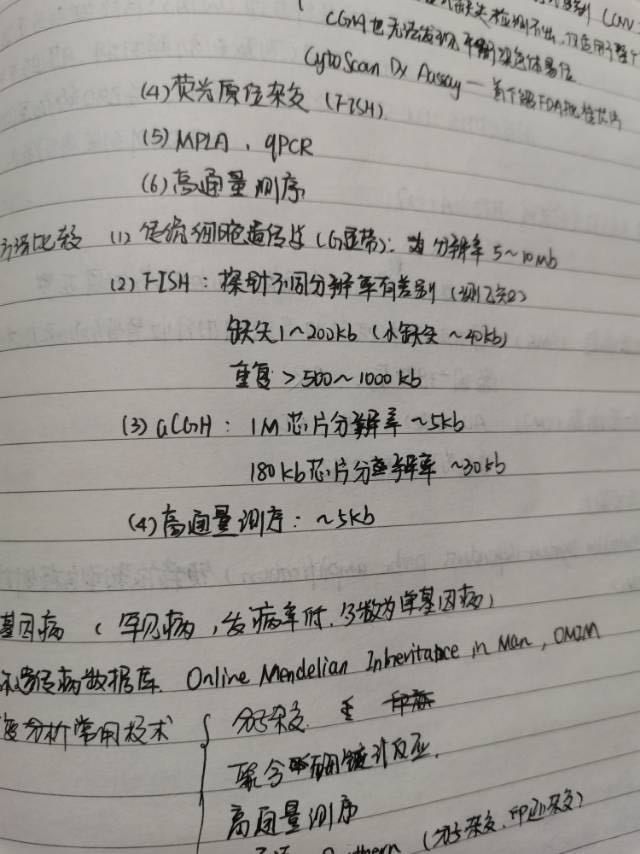 CGH也无法发现平衡染色体易位
CytoScan Dx Assay — 首个经FDA批准
(4) 荧光原位杂交 (FISH)
(5) MPLA、qPCR
(6) 高通量测序
方法比较 (1) 传统细胞遗传 (G显带): 分辨率 5~10Mb
(2) FISH: 探针不同分辨率有差别
缺失1~200kb (小缺失 ~40kb)
重复 > 500~1000kb
(3) aCGH: 1M 芯片分辨率 ~5kb
180kb芯片分辨率 ~30kb
(4) 高通量测序: ~5kb
基因病 (罕见病, 发病率低, 多数为单基因病)
遗传病数据库. Online Mendelian Inheritance in Man, OMIM
分析常用技术 { 分子杂交
聚合酶链式反应.
高通量测序
Southern (分子杂交, 印迹杂交)